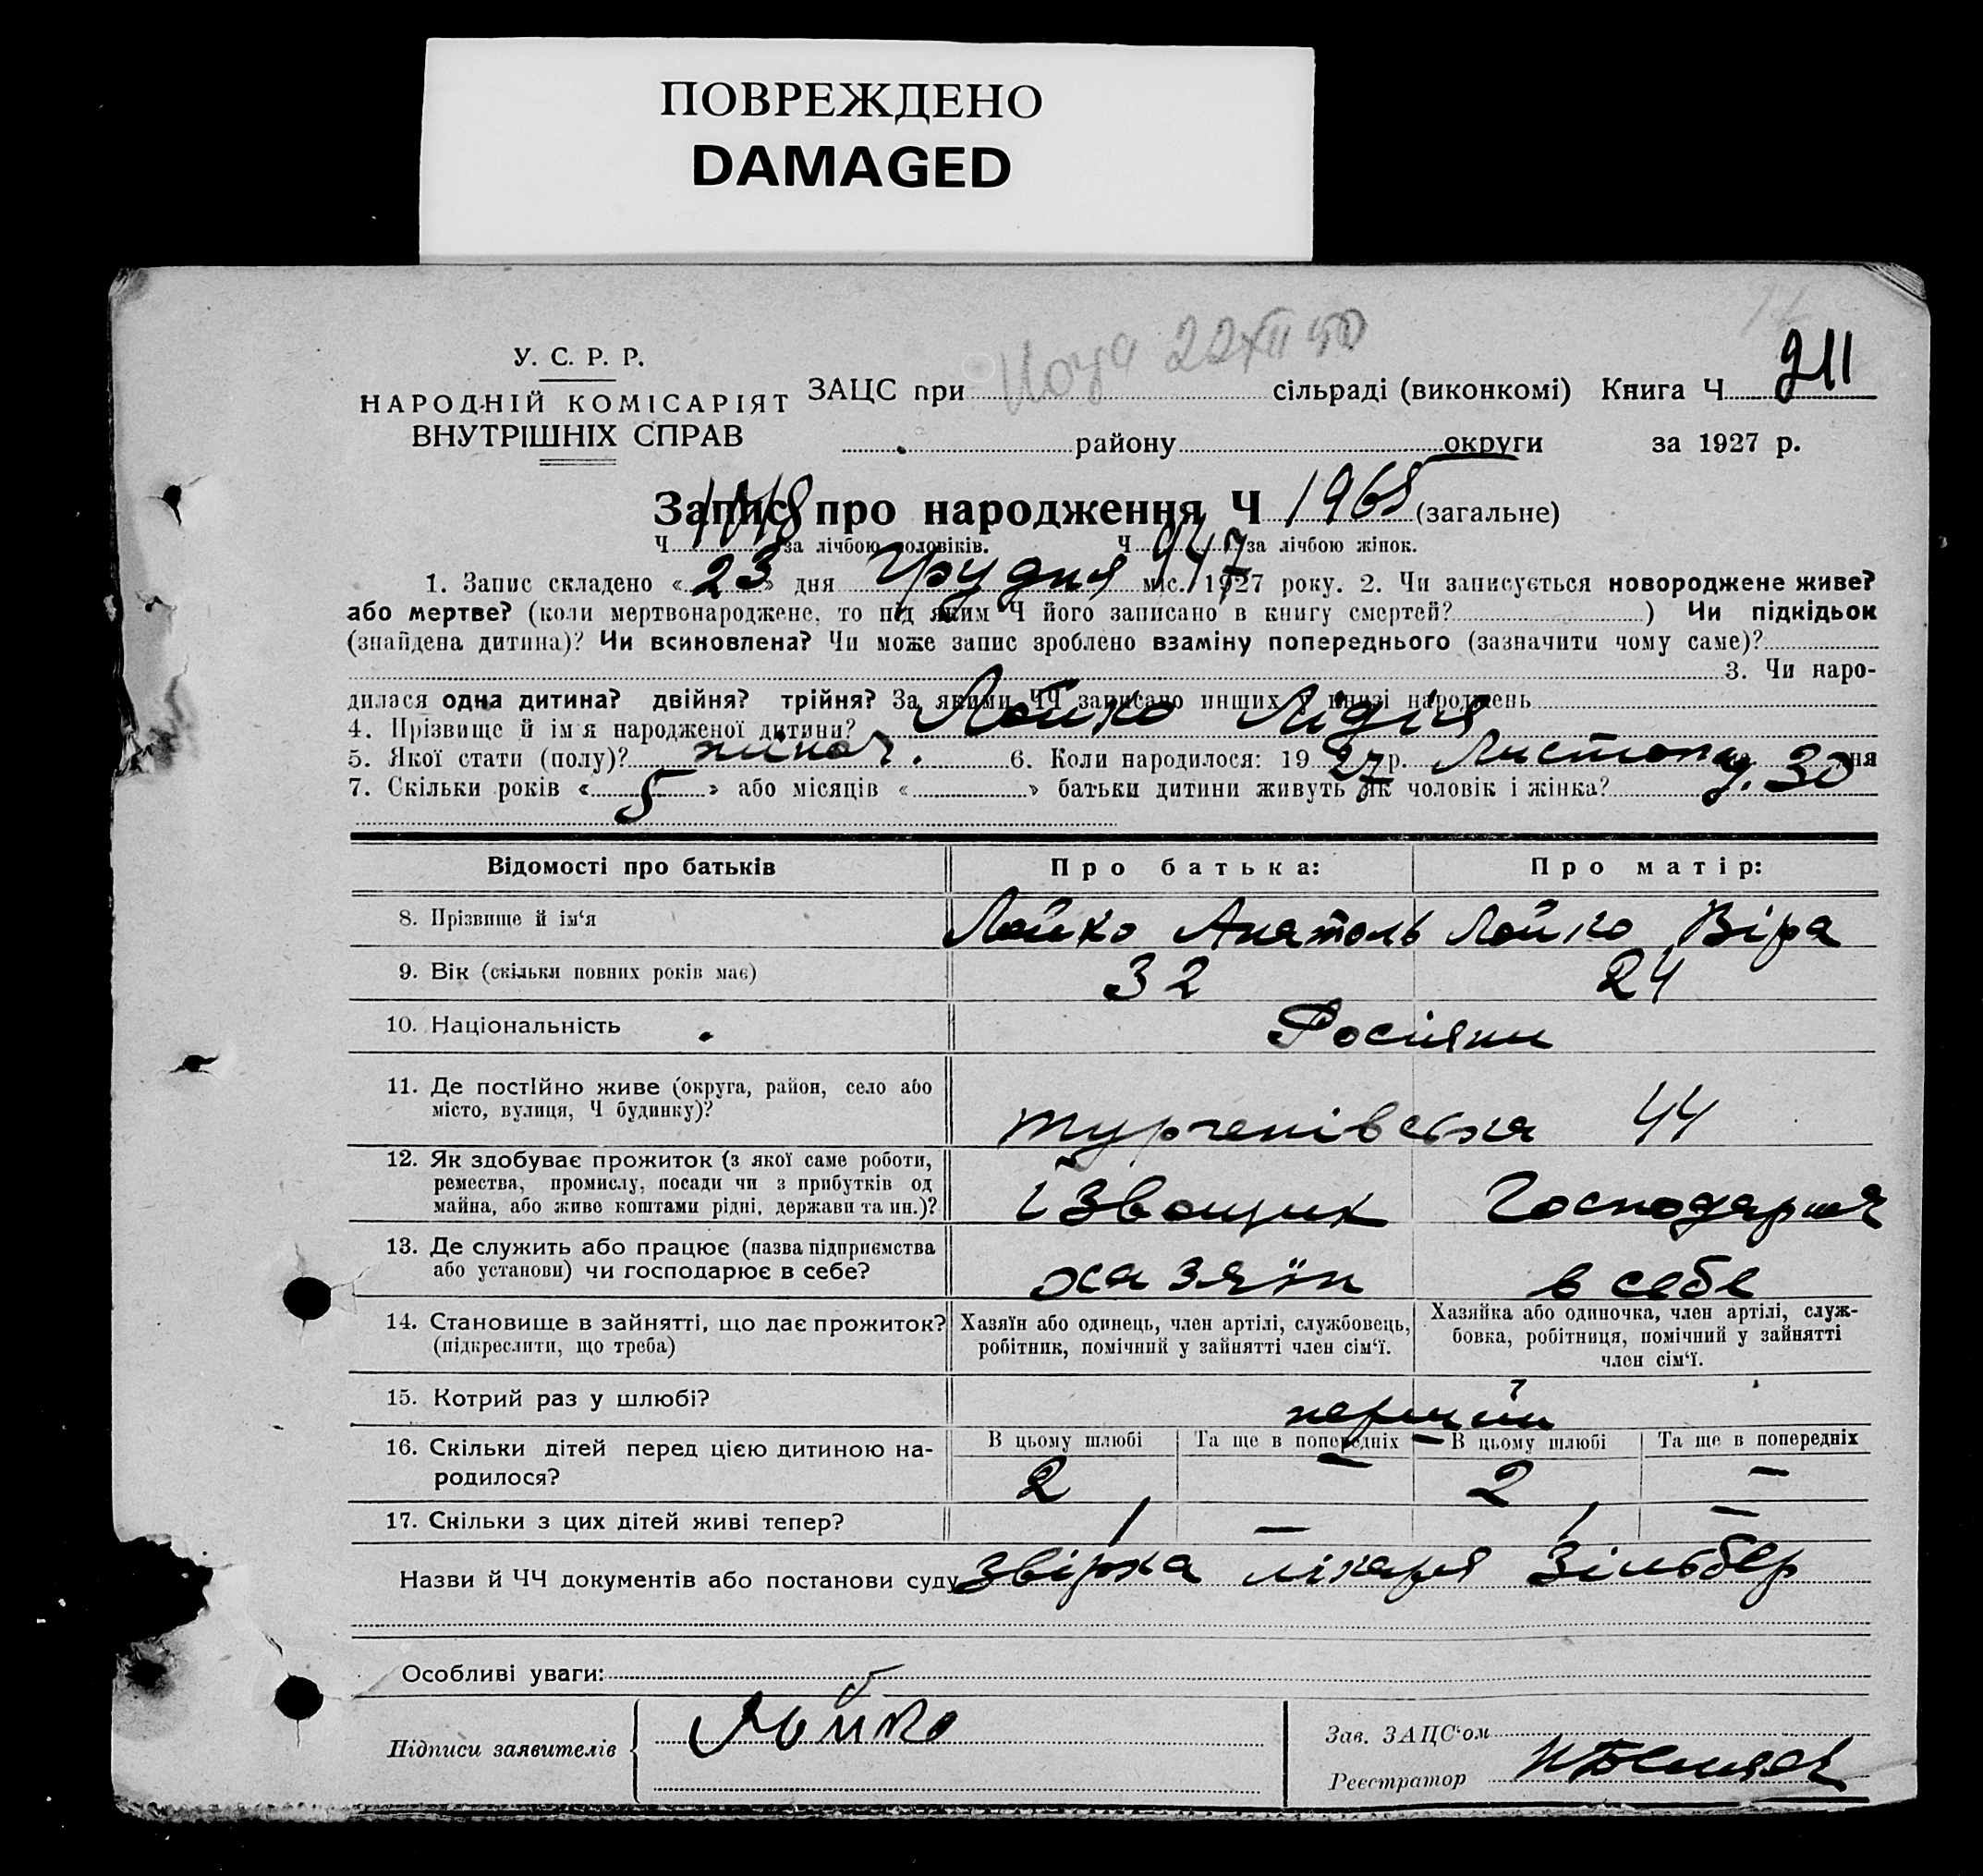 ПОВРЕЖДЕНО
DAMAGED
У. С. Р. Р.
НАРОДНІЙ КОМІСАРІЯТ
ВНУТРІШНІХ СПРАВ
22 XII 50
ЗАЦС при сільраді (виконкомі) Книга Ч 211
району округи за 1927 р.
Запис про народження Ч 1965 (загальне)
Ч 1018 за лічбою чоловіків. Ч 947 за лічбою жінок.
1. Запис складено « 23 » дня Грудня міс. 1927 року. 2. Чи записується новороджене живе?
або мертве? (коли мертвонароджене, то під яким Ч його записано в книгу смертей? ) Чи підкідьок
(знайдена дитина)? Чи всиновлена? Чи може запис зроблено взаміну попереднього (зазначити чому саме)?
3. Чи наро-
дилася одна дитина? двійня? трійня? За якими ЧЧ записано инших у книзі народжень
4. Прізвище й ім'я народженої дитини? Лойко Лідія
5. Якої стати (полу)? жіноч. 6. Коли народилося: 19 27 р. Листопад. 30 дня
7. Скільки років « 5 » або місяців « » батьки дитини живуть як чоловік і жінка?
Відомості про батьків Про батька: Про матір:
8. Прізвище й ім‘я Лойко Анатоль Лойко Віра
9. Вік (скільки повних років має) 32 24
10. Національність Росіяни
11. Де постійно живе (округа, район, село або
місто, вулиця, Ч будинку)? Тургенівська 44
12. Як здобуває прожиток (з якої саме роботи,
ремества, промислу, посади чи з прибутків од
майна, або живе коштами рідні, держави та ин.)? ізвощик Господарня
13. Де служить або працює (назва підприємства
або установи) чи господарює в себе? хазяїн в себе
14. Становище в зайнятті, що дає прожиток?
(підкреслити, що треба)
Хазяїн або одинець, член артілі, службовець,
робітник, помічний у зайнятті член сім‘ї.
Хазяйка або одиночка, член артілі, служ-
бовка, робітниця, помічний у зайнятті
член сім‘ї.
15. Котрий раз у шлюбі? перший
16. Скільки дітей перед цією дитиною на-
родилося?
В цьому шлюбі Та ще в попередніх В цьому шлюбі Та ще в попередніх
2 — 2 —
17. Скільки з цих дітей живі тепер? 1 — 1 —
Назви й ЧЧ документів або постанови суду Звірка лікаря Зільбер
Особливі уваги:
Підписи заявителів Лойко
Зав. ЗАЦС‘ом
Реєстратор